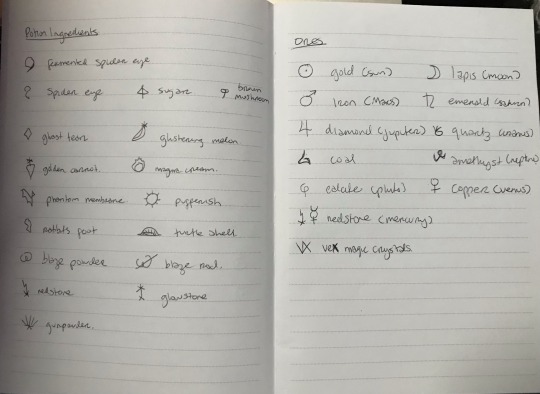 Potion Ingredients
fermented spider eye
spider eye
sugar
brown mushroom
ghast tear
glistering melon
golden carrot.
magma cream.
phantom membrane
pufferfish
rabbits foot
turtle shell
blaze powder
blaze rod.
redstone
glowstone
gunpowder.
Ores
gold (sun)
lapis (moon)
Iron (Mars)
emerald (saturn)
diamond (jupiter)
quartz (uranus)
coal
amethyst (neptune)
(pluto)
copper (venus)
redstone (mercury)
vex magic crystals.